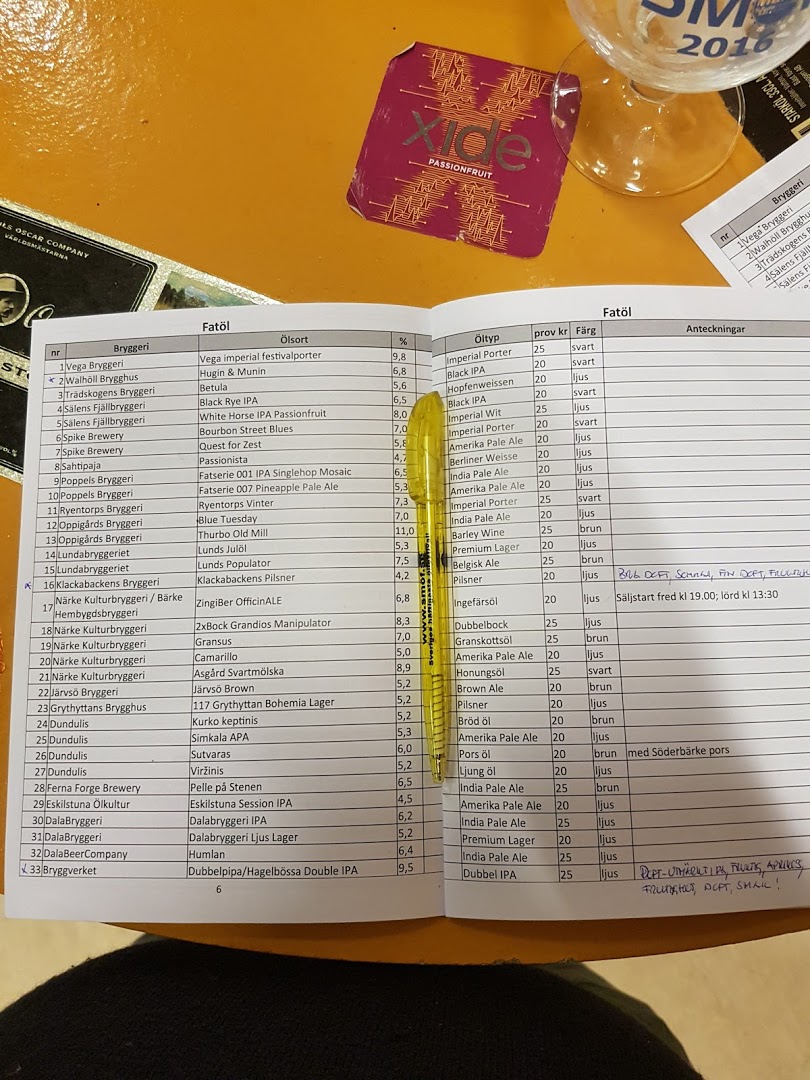 SMÖ
2016
xide
PASSIONFRUIT
STARKÖL 33CL
LS OSCAR COMPANY
VÄRLDSMÄSTARNA
nr Bryggeri
1 Vega Bryggeri
2 Walhöll Brygghus
3 Trädskogens B
4 Sälens Fjäll
Sälens
www.smof.se
Fatöl
Fatöl
nr Bryggeri Ölsort % Öltyp prov kr Färg Anteckningar
1 Vega Bryggeri Vega imperial festivalporter 9,8 Imperial Porter 25 svart
2 Walhöll Brygghus Hugin & Munin 6,8 Black IPA 20 svart
3 Trädskogens Bryggeri Betula 5,6 Hopfenweissen 20 ljus
4 Sälens Fjällbryggeri Black Rye IPA 6,5 Black IPA 20 svart
5 Sälens Fjällbryggeri White Horse IPA Passionfruit 8,0 Imperial Wit 25 ljus
6 Spike Brewery Bourbon Street Blues 7,0 Imperial Porter 20 svart
7 Spike Brewery Quest for Zest 5,8 Amerika Pale Ale 20 ljus
8 Sahtipaja Passionista 4,7 Berliner Weisse 20 ljus
9 Poppels Bryggeri Fatserie 001 IPA Singlehop Mosaic 6,5 India Pale Ale 20 ljus
10 Poppels Bryggeri Fatserie 007 Pineapple Pale Ale 5,3 Amerika Pale Ale 20 ljus
11 Ryentorps Bryggeri Ryentorps Vinter 7,3 Imperial Porter 25 svart
12 Oppigårds Bryggeri Blue Tuesday 7,0 India Pale Ale 20 ljus
13 Oppigårds Bryggeri Thurbo Old Mill 11,0 Barley Wine 25 brun
14 Lundabryggeriet Lunds Julöl 5,3 Premium Lager 20 ljus
15 Lundabryggeriet Lunds Populator 7,5 Belgisk Ale 25 brun
16 Klackabackens Bryggeri Klackabackens Pilsner 4,2 Pilsner 20 ljus BRA DOFT, SMAKA, FIN DOFT,
17 Närke Kulturbryggeri / Bärke Hembygdsbryggeri ZingiBer OfficinALE 6,8 Ingefärsöl 20 ljus Säljstart fred kl 19.00; lörd kl 13:30
18 Närke Kulturbryggeri 2xBock Grandios Manipulator 8,3 Dubbelbock 25 ljus
19 Närke Kulturbryggeri Gransus 7,0 Granskottsöl 25 brun
20 Närke Kulturbryggeri Camarillo 5,0 Amerika Pale Ale 20 ljus
21 Närke Kulturbryggeri Asgård Svartmölska 8,9 Honungsöl 25 svart
22 Järvsö Bryggeri Järvsö Brown 5,2 Brown Ale 20 brun
23 Grythyttans Brygghus 117 Grythyttan Bohemia Lager 5,2 Pilsner 20 ljus
24 Dundulis Kurko keptinis 5,2 Bröd öl 20 brun
25 Dundulis Simkala APA 5,3 Amerika Pale Ale 20 ljus
26 Dundulis Sutvaras 6,0 Pors öl 20 brun med Söderbärke pors
27 Dundulis Viržinis 5,2 Ljung öl 20 ljus
28 Ferna Forge Brewery Pelle på Stenen 6,5 India Pale Ale 25 brun
29 Eskilstuna Ölkultur Eskilstuna Session IPA 4,5 Amerika Pale Ale 20 ljus
30 DalaBryggeri Dalabryggeri IPA 6,2 India Pale Ale 25 ljus
31 DalaBryggeri Dalabryggeri Ljus Lager 5,2 Premium Lager 20 ljus
32 DalaBeerCompany Humlan 6,4 India Pale Ale 25 ljus
33 Bryggverket Dubbelpipa/Hagelbössa Double IPA 9,5 Dubbel IPA 25 ljus DOFT-UTMÄRKT IPA, FRUKTIG,
FRUKTIGHET, DOFT, SMAK!
6